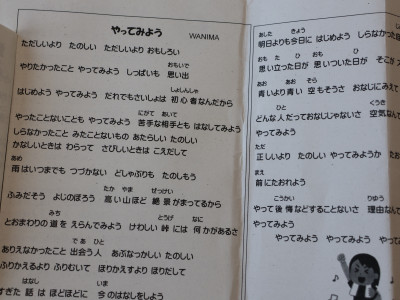 やってみよう
WANIMA
ただしいより たのしい ただしいより おもしろい
おもいで
やりたかったこと やってみよう しっぱいも 思い出
しょしんしゃ
はじめよう やってみよう だれでもさいしょは 初心者なんだから
にがて あいて
やったことないことも やってみよう 苦手な相手とも はなしてみよう
しらなかったこと みたことないもの あたらしい たのしい
かなしいときは わらって さびしいときは こえだして
あめ
雨はいつまでも つづかない どしゃぶりも たのしもう
たか やま ぜっけい
ふみだそう よじのぼろう 高い山ほど 絶景がまってるから
みち とうげ なに
とおまわりの 道を えらんでみよう けわしい 峠には 何かがあるさ
であ ひと
ありえなかったこと 出会う人 あぶなっかしい たのしい
ふりかえるより ふりむいて ほりかえすより ほりだして
はなし いま
すぎた 話は ほどほどに 今のはなしをしよう
あした きょう
明日よりも今日に はじめよう しらなかった
おも た ひ おも ひ
思い立った日が 思いついた日が そこが
あお あお そら
青いより青い 空もそうさ おなじにみえて
ひと くうき
どんな人だっておなじじゃないさ 空気なんて
やってみよう
ただ
正しいより たのしい やってみようか たお
まえ
前にたおれよう
こうかい りゆう
やって後悔などすることないさ 理由なん
やってみよう
やってみよう やってみよう やってみ